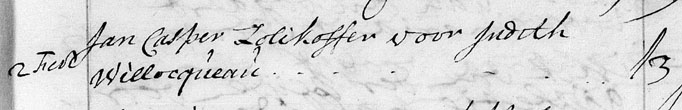 Jan Casper Zolikoffer voor Judith
Willocqueau . . . . . . 3